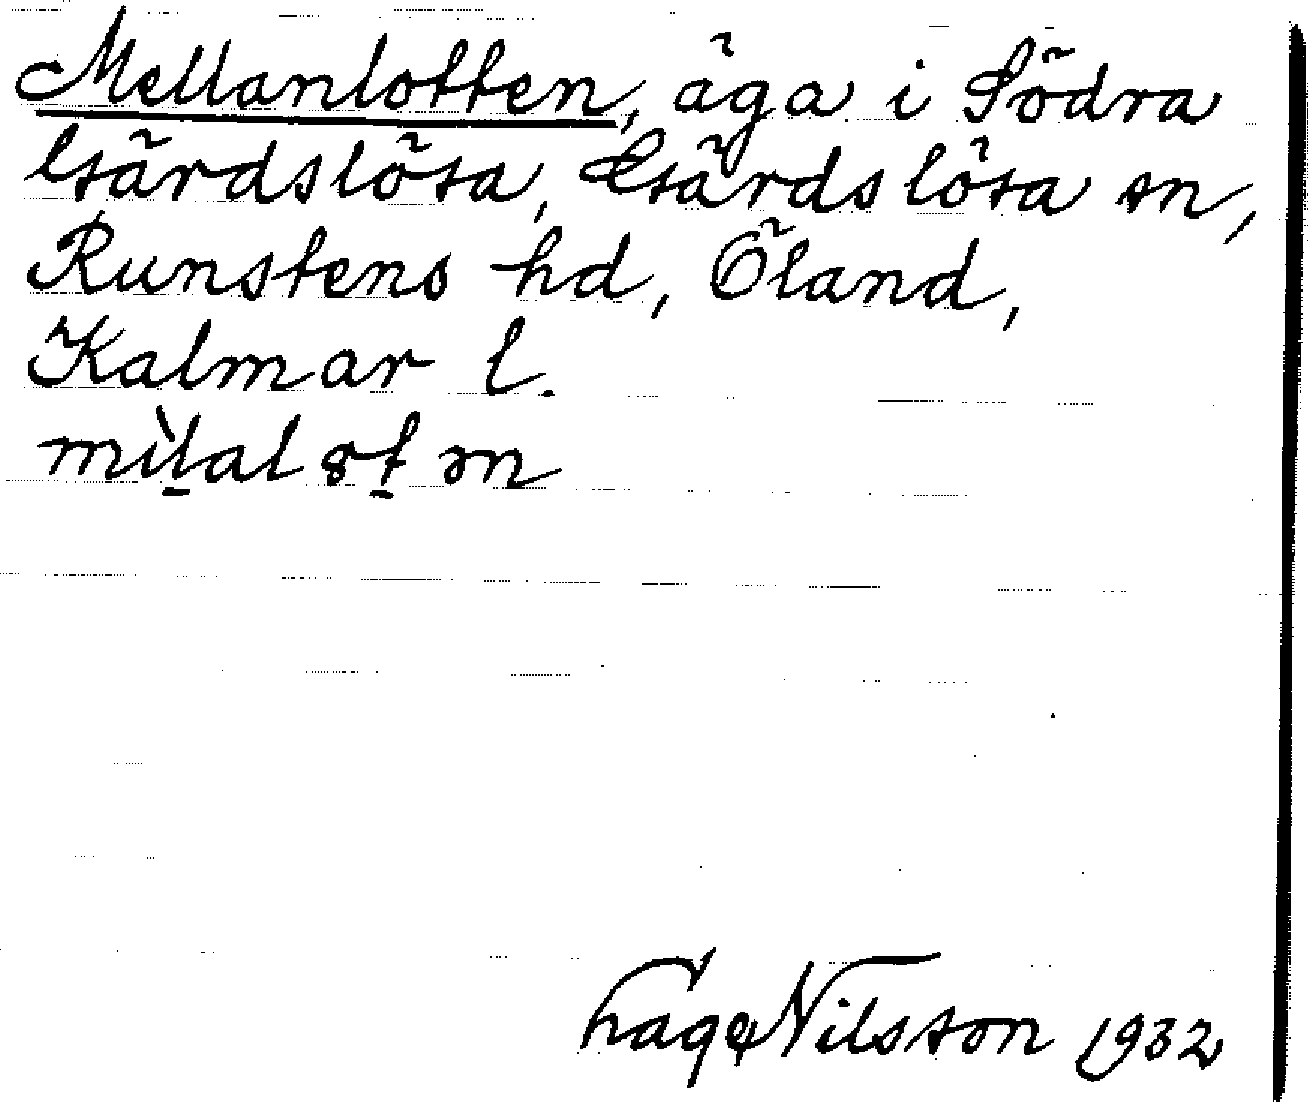 Mellanlotten, äga i Södra
Gärdslösa, Gärdslösa sn,
Runstens hd, Öland,
Kalmar l.
Nilsson 1932